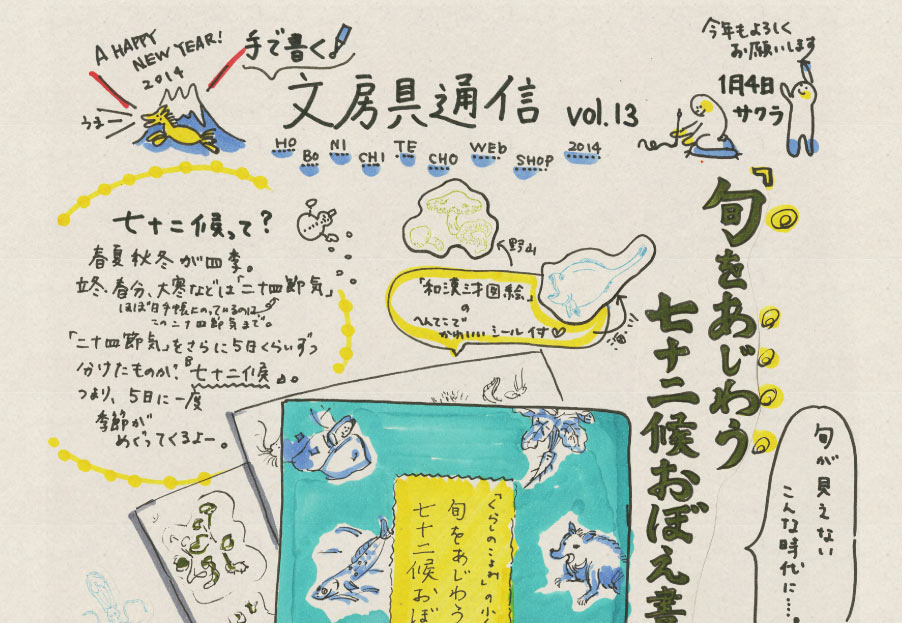 A HAPPY
NEW YEAR!
2014
うまー
手で書く
文房具通信 vol.13
HO BO NI CHI TE CHO WEB SHOP 2014
今年もよろしく
お願いします
1月4日
サクラ
『旬をあじわう
七十二候おぼえ書
七十二候って?
春夏秋冬が四季。
立冬、春分、大寒などは「二十四節気」
ほぼ日手帳にのっているのは
この二十四節気まで。
「二十四節気」をさらに5日くらいずつ
分けたものが、「七十二候」。
つまり、5日に一度
季節が
めぐってくるよー。
野山
「和漢三才図絵」
の
へんてこで
かわいいシール付♡
海
旬が見えない
こんな時代に……
「くらしのこよみ」の小
旬をあじわう
七十二候おぼ